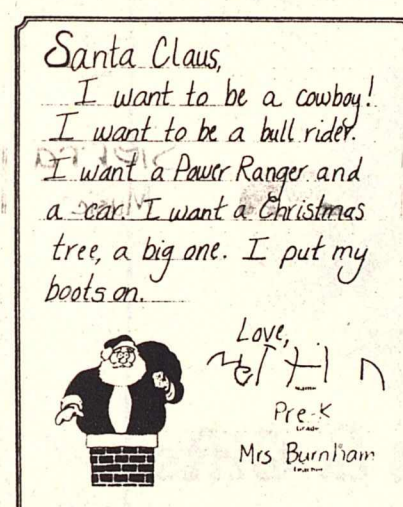 Santa Claus,
I want to be a cowboy!
I want to be a bull rider.
I want a Power Ranger and
a car. I want a Christmas
tree, a big one. I put my
boots on.
Love,
Pre-K
Grade
Mrs Burnham
Teacher